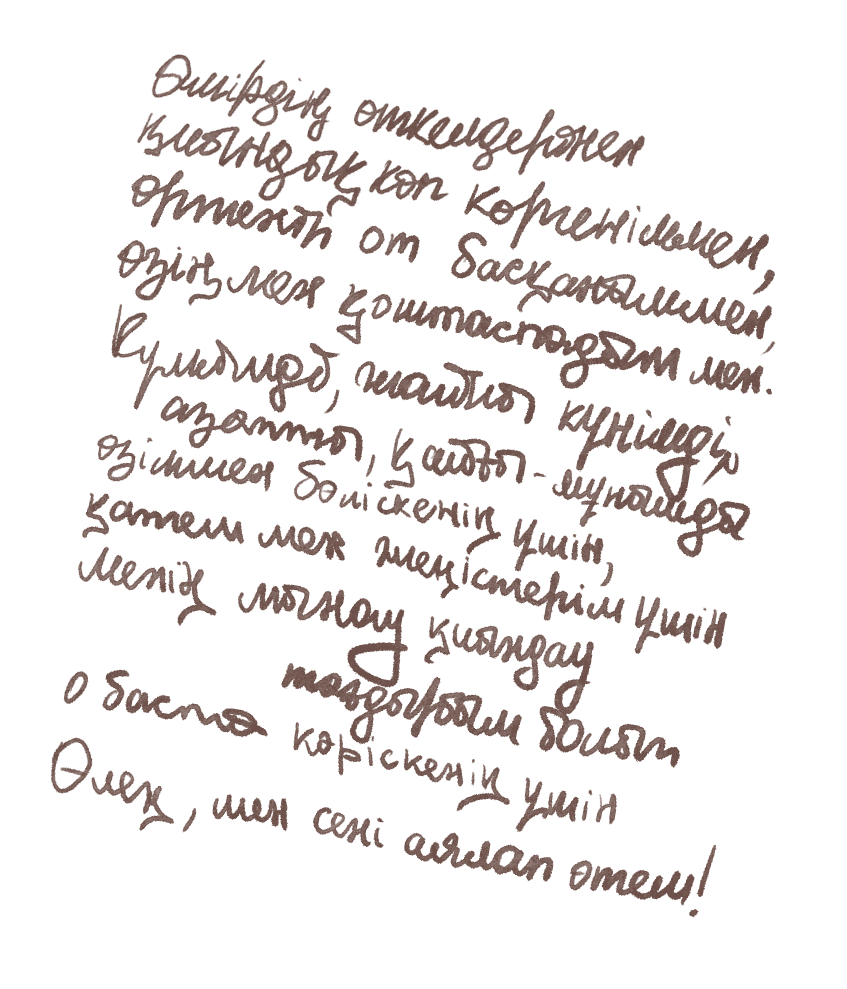 Өмірдің өткелдерінен
қиындық көп көргеніммен,
өртенті от басқаныммен,
өзіңмен қоштаспадым мен.
Күлкімді, жайлы күнімді,
азапты, қайғы-мұңымды
өзіммен бөліскенің үшін,
қатем мен жеңістерім үшін
менің мынау қиындау
тағдырым болып
о баста көріскенің үшін
Өлең, мен сені аялап өтем!